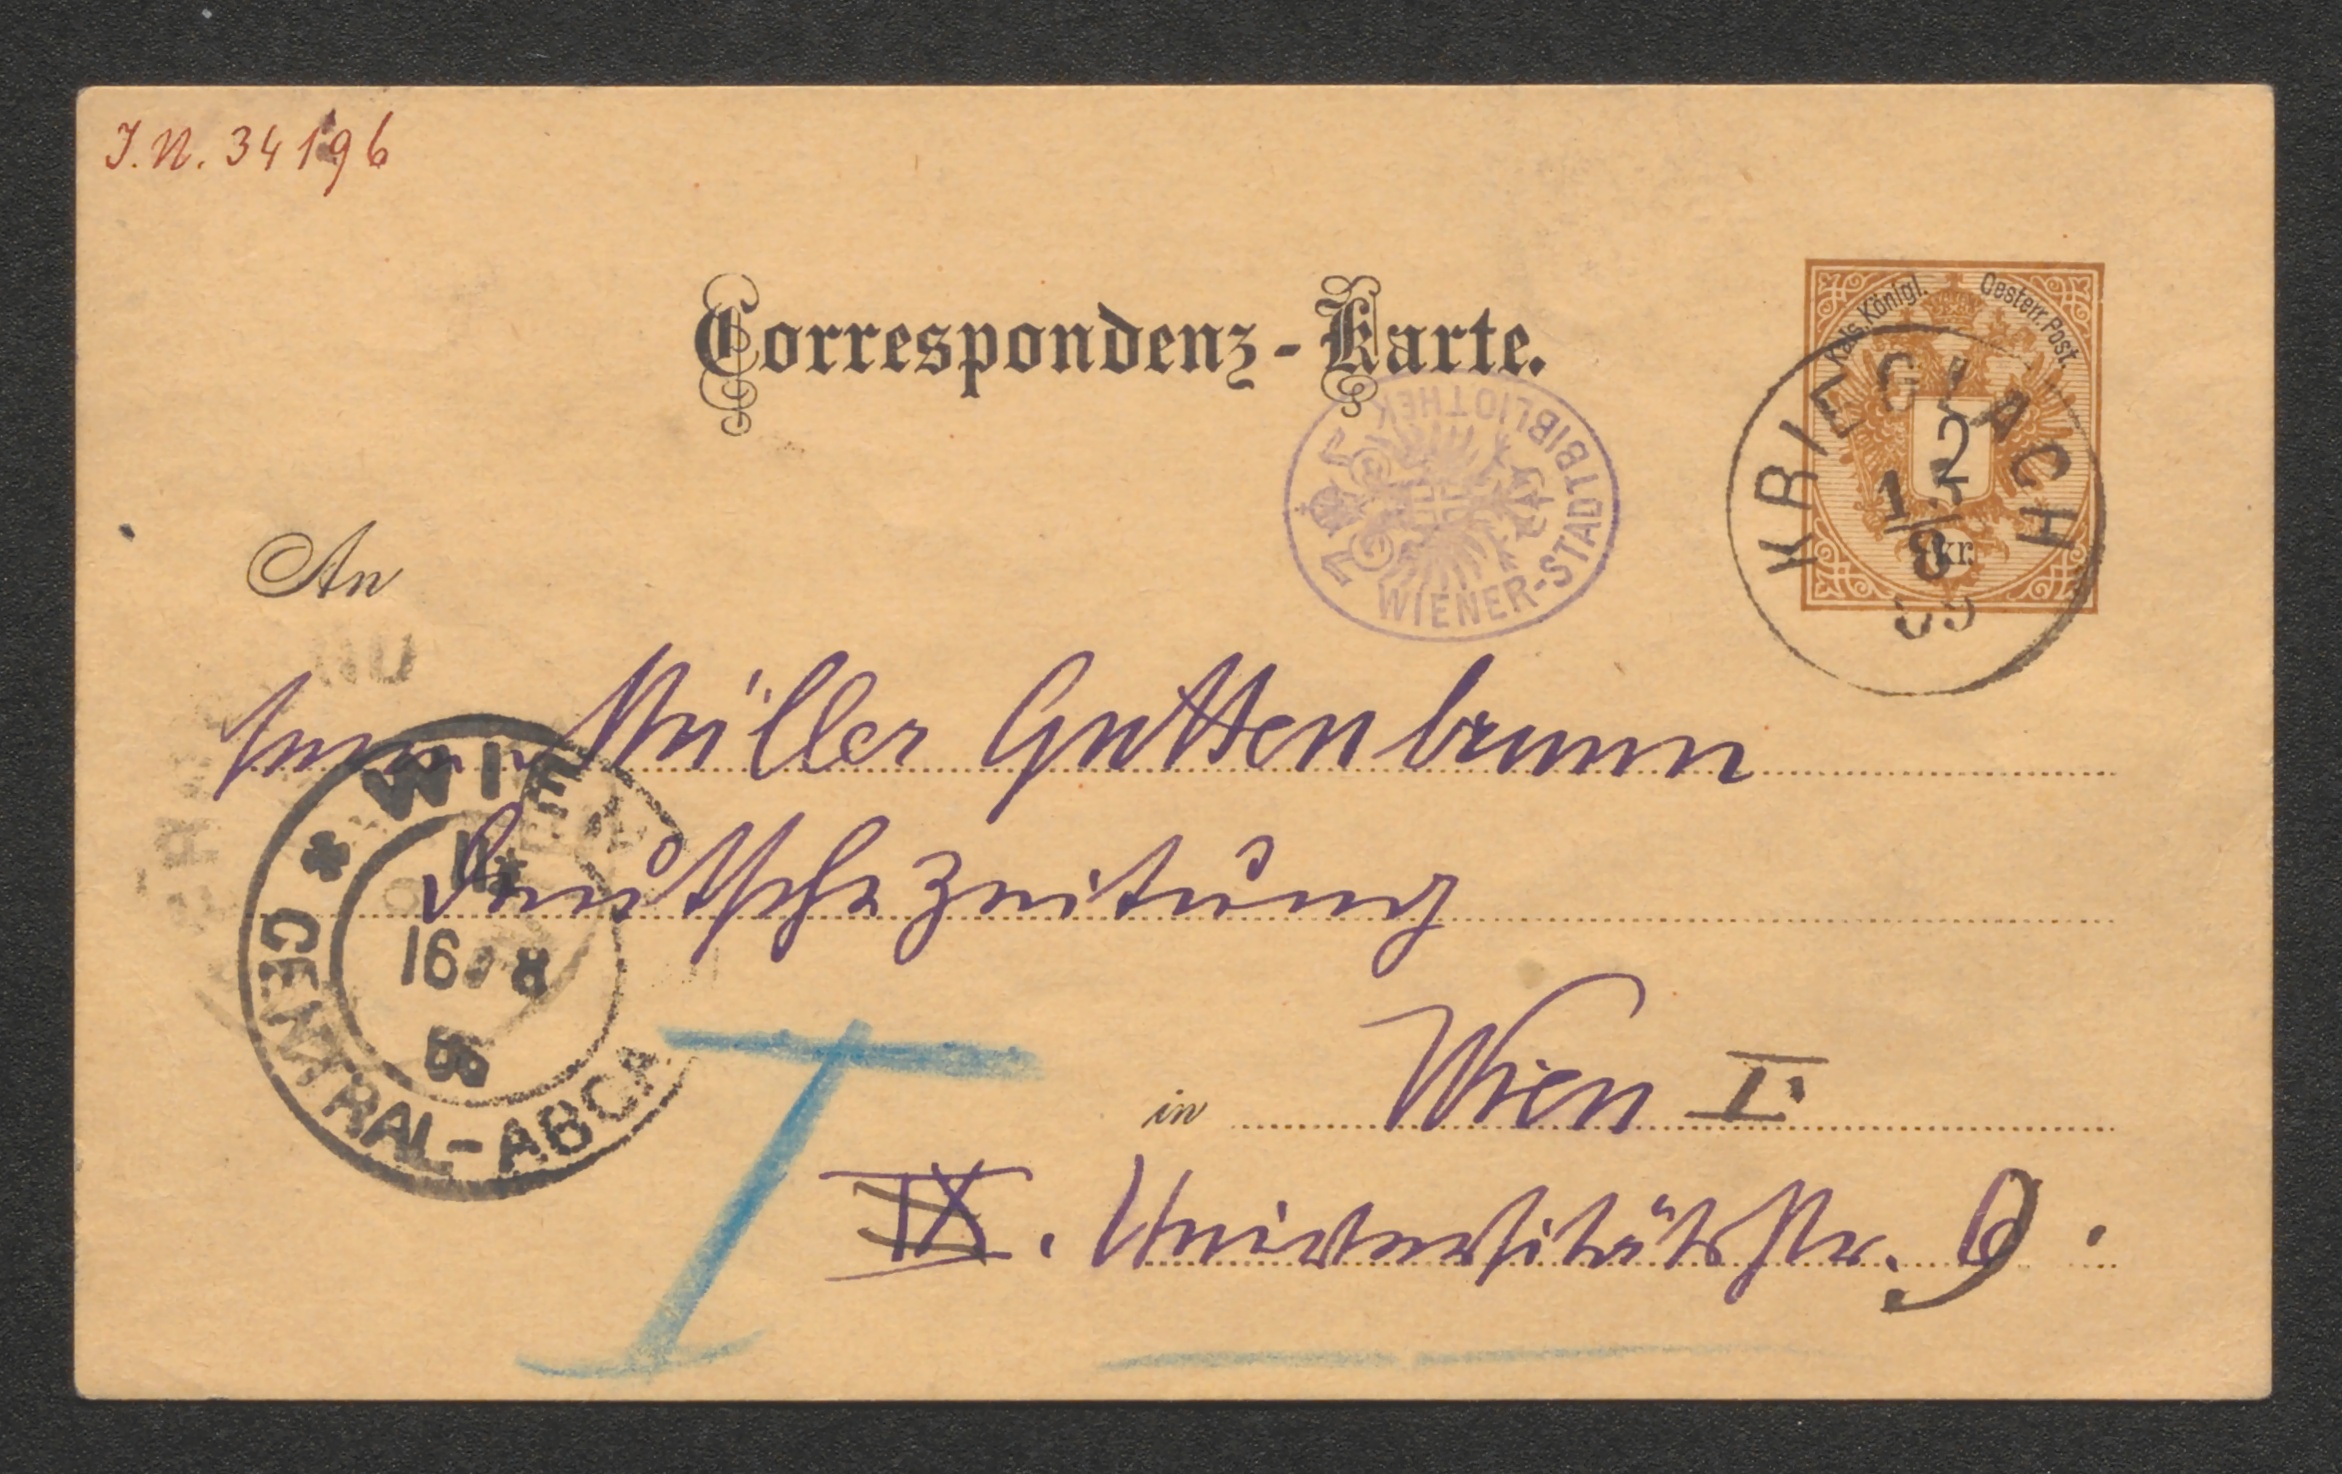 J.N. 34196
Correspondenz-Karte.
Kais. Königl. Oesterr. Post.
2
kr.
KRIEGLACH
15
8
89
WIENER-STADTBIBLIOTHEK
An
Herrn Müller Guttenbrunn
Deutsche Zeitung
WIEN
16 8
CENTRAL-ABGA
in Wien I
I
IX. Universitätsstr.